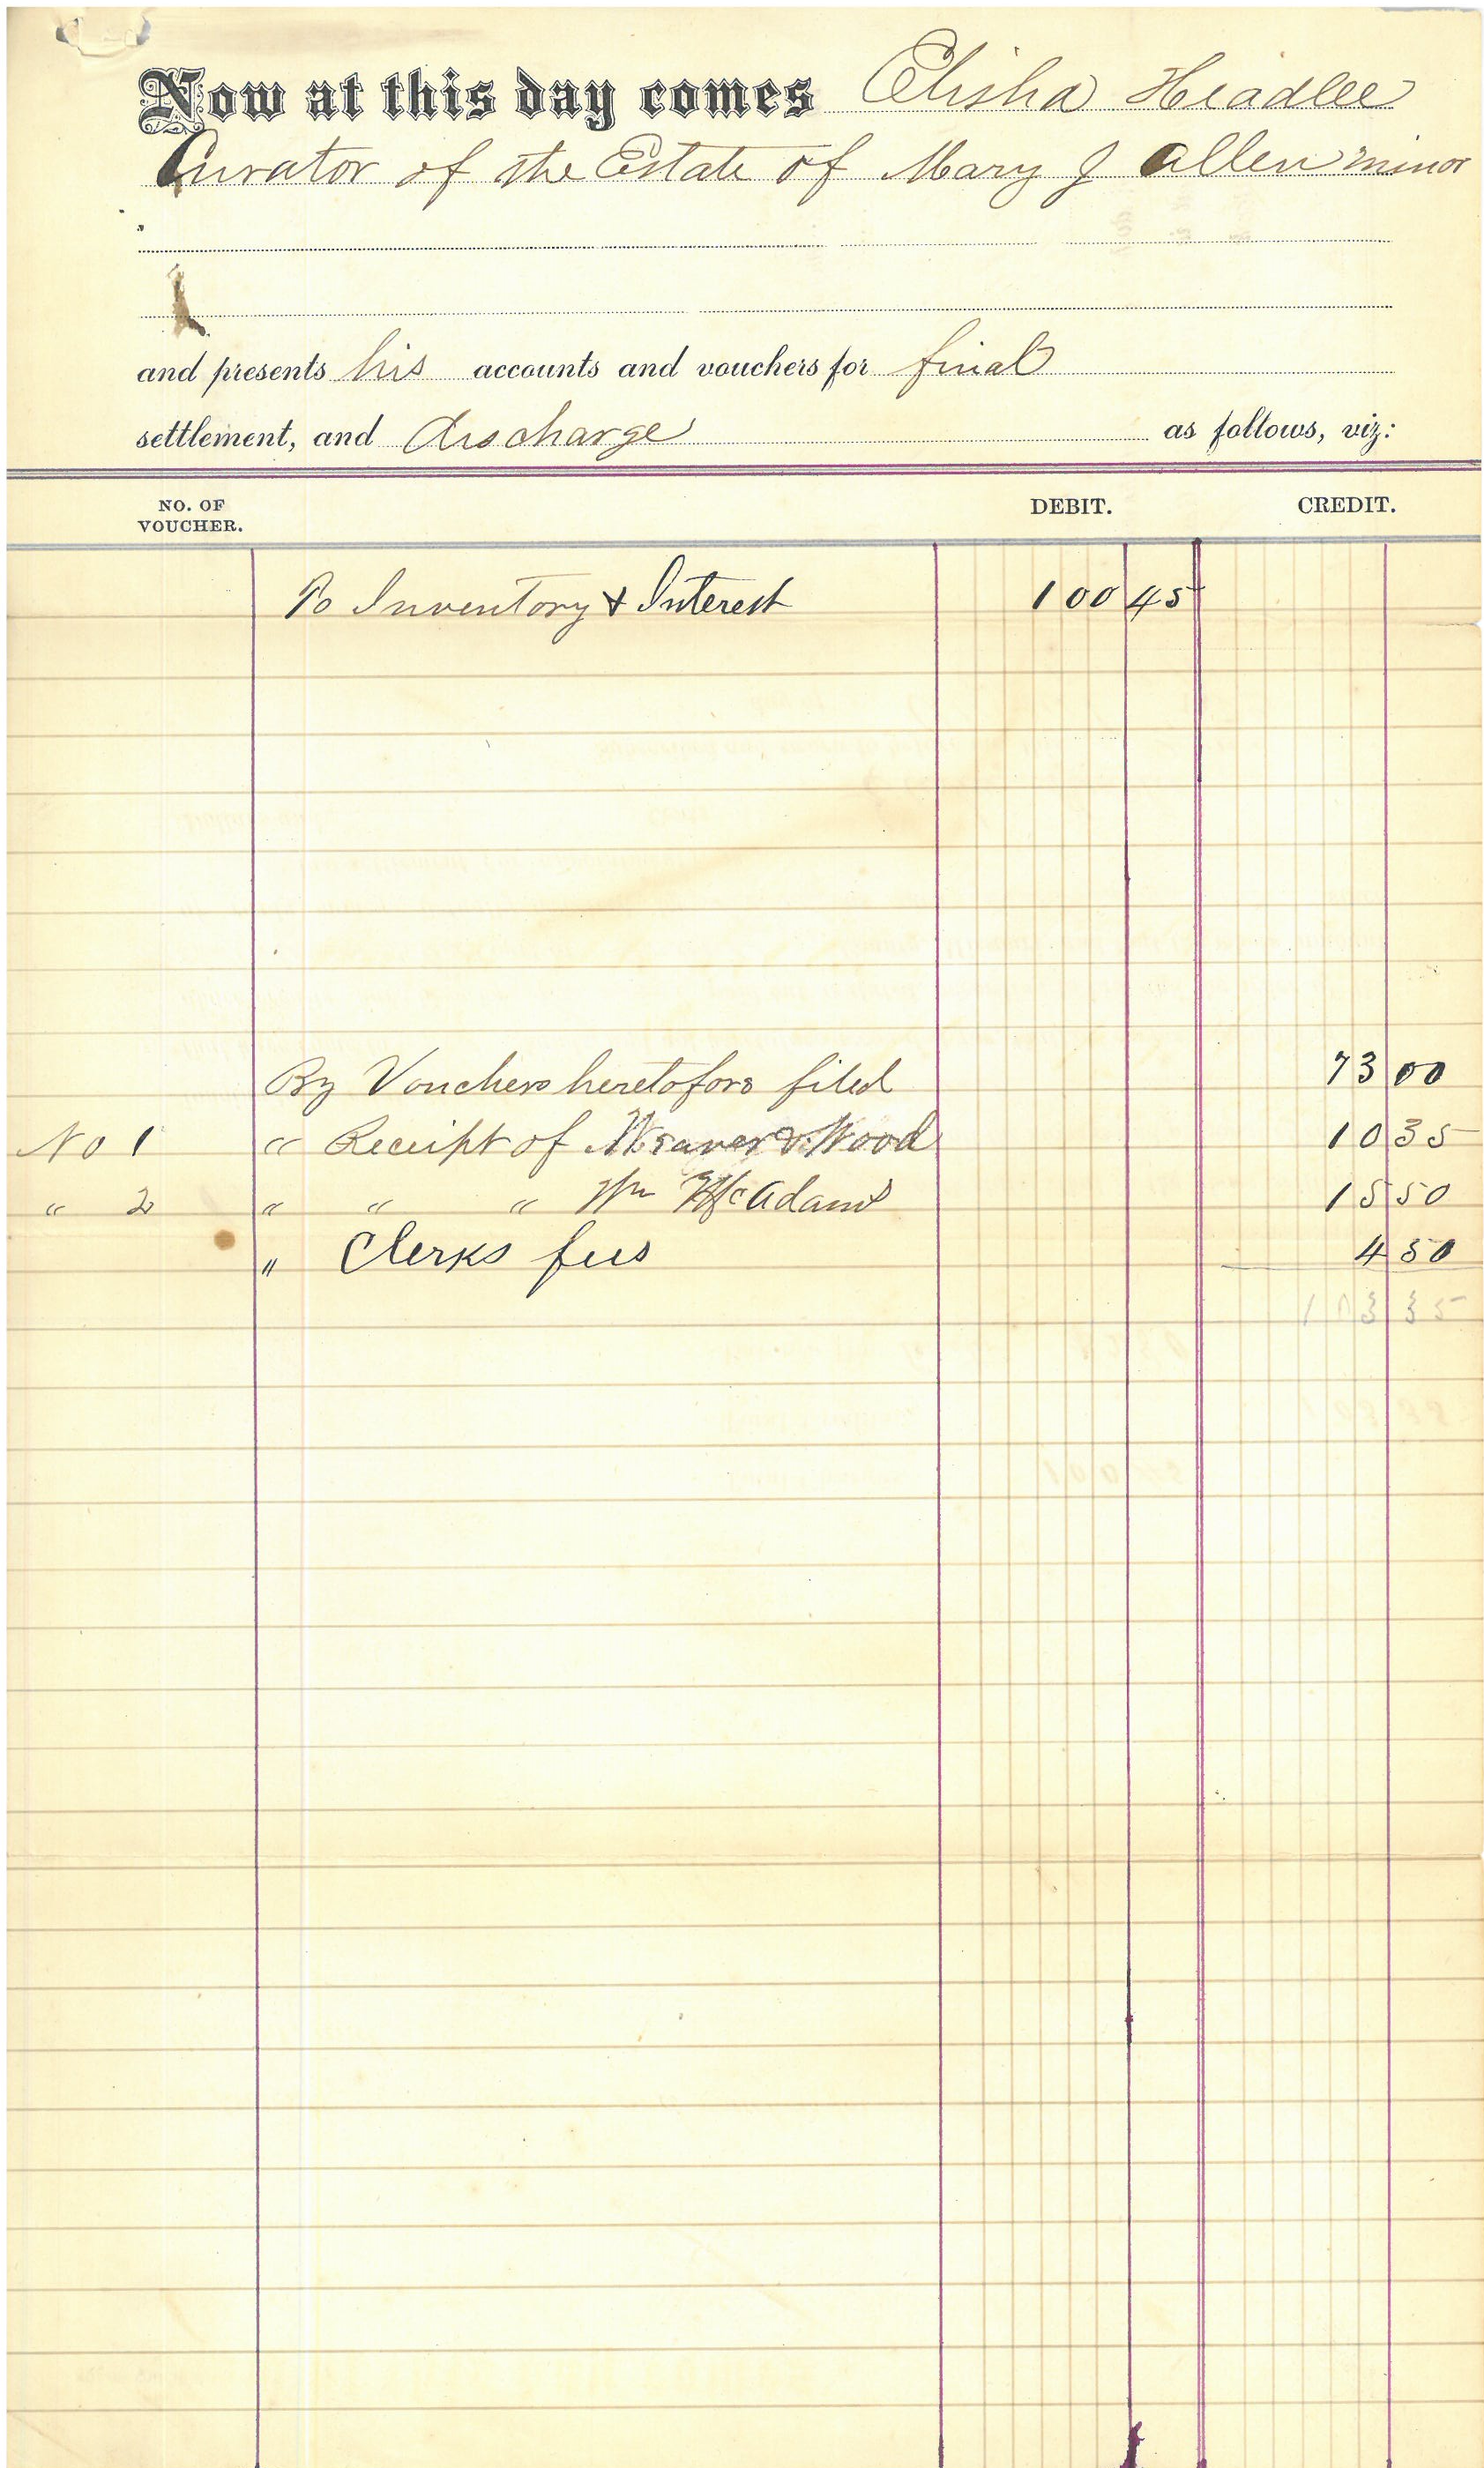 Now at this day comes Elisha Headlee
Curator of the Estate of Mary J Allen minor
and presents his accounts and vouchers for final
settlement, and discharge as follows, viz:
NO. OF VOUCHER. DEBIT. CREDIT.
To Inventory & Interest 100 45
By Vouchers heretofore filed 73 00
No 1 " Receipt of Weaver & Wood 10 35
" 2 " " " Wm McAdams 15 50
" Clerks fees 4 50
103 35